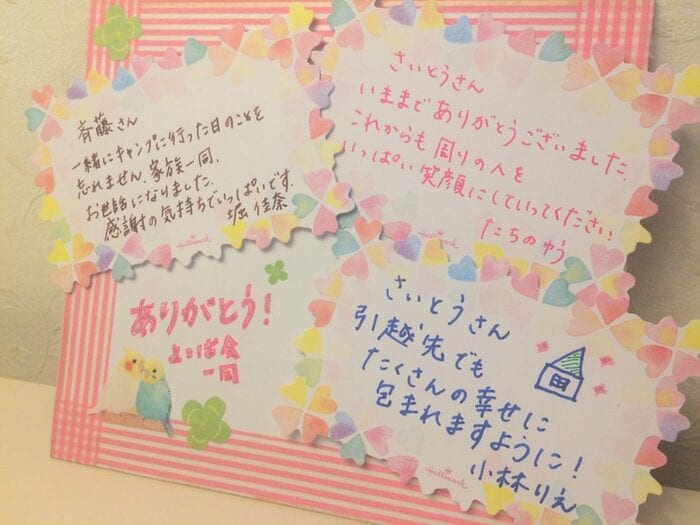 斉藤さん
一緒にキャンプに行った日のことを
忘れません。家族一同、
お世話になりました。
感謝の気持ちでいっぱいです。
堀 佳奈
Hallmark
さいとうさん
いままでありがとうございました。
これからも周りの人を
いっぱい笑顔にしていってください。
たちの ゆう
Hallmark
ありがとう!
よつば会
一同
さいとうさん
引越先でも
たくさんの幸せに
包まれますように!
小林りえ
Hallmark